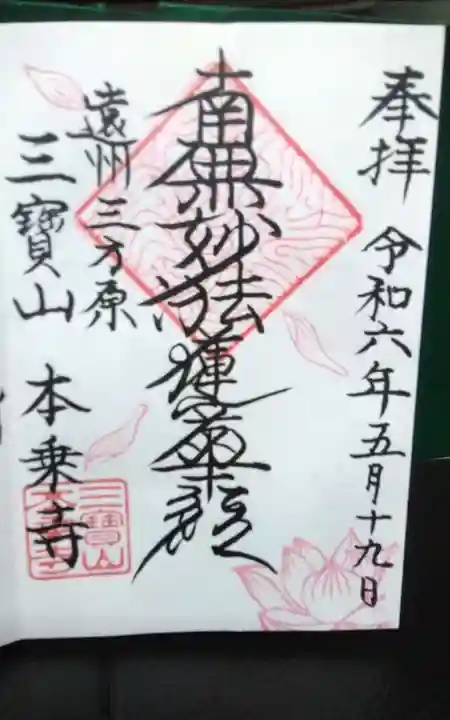 奉拝 令和六年五月十九日
南無妙法蓮華経
遠州三方原
三寶山 本乗寺
三寶山
本乗寺